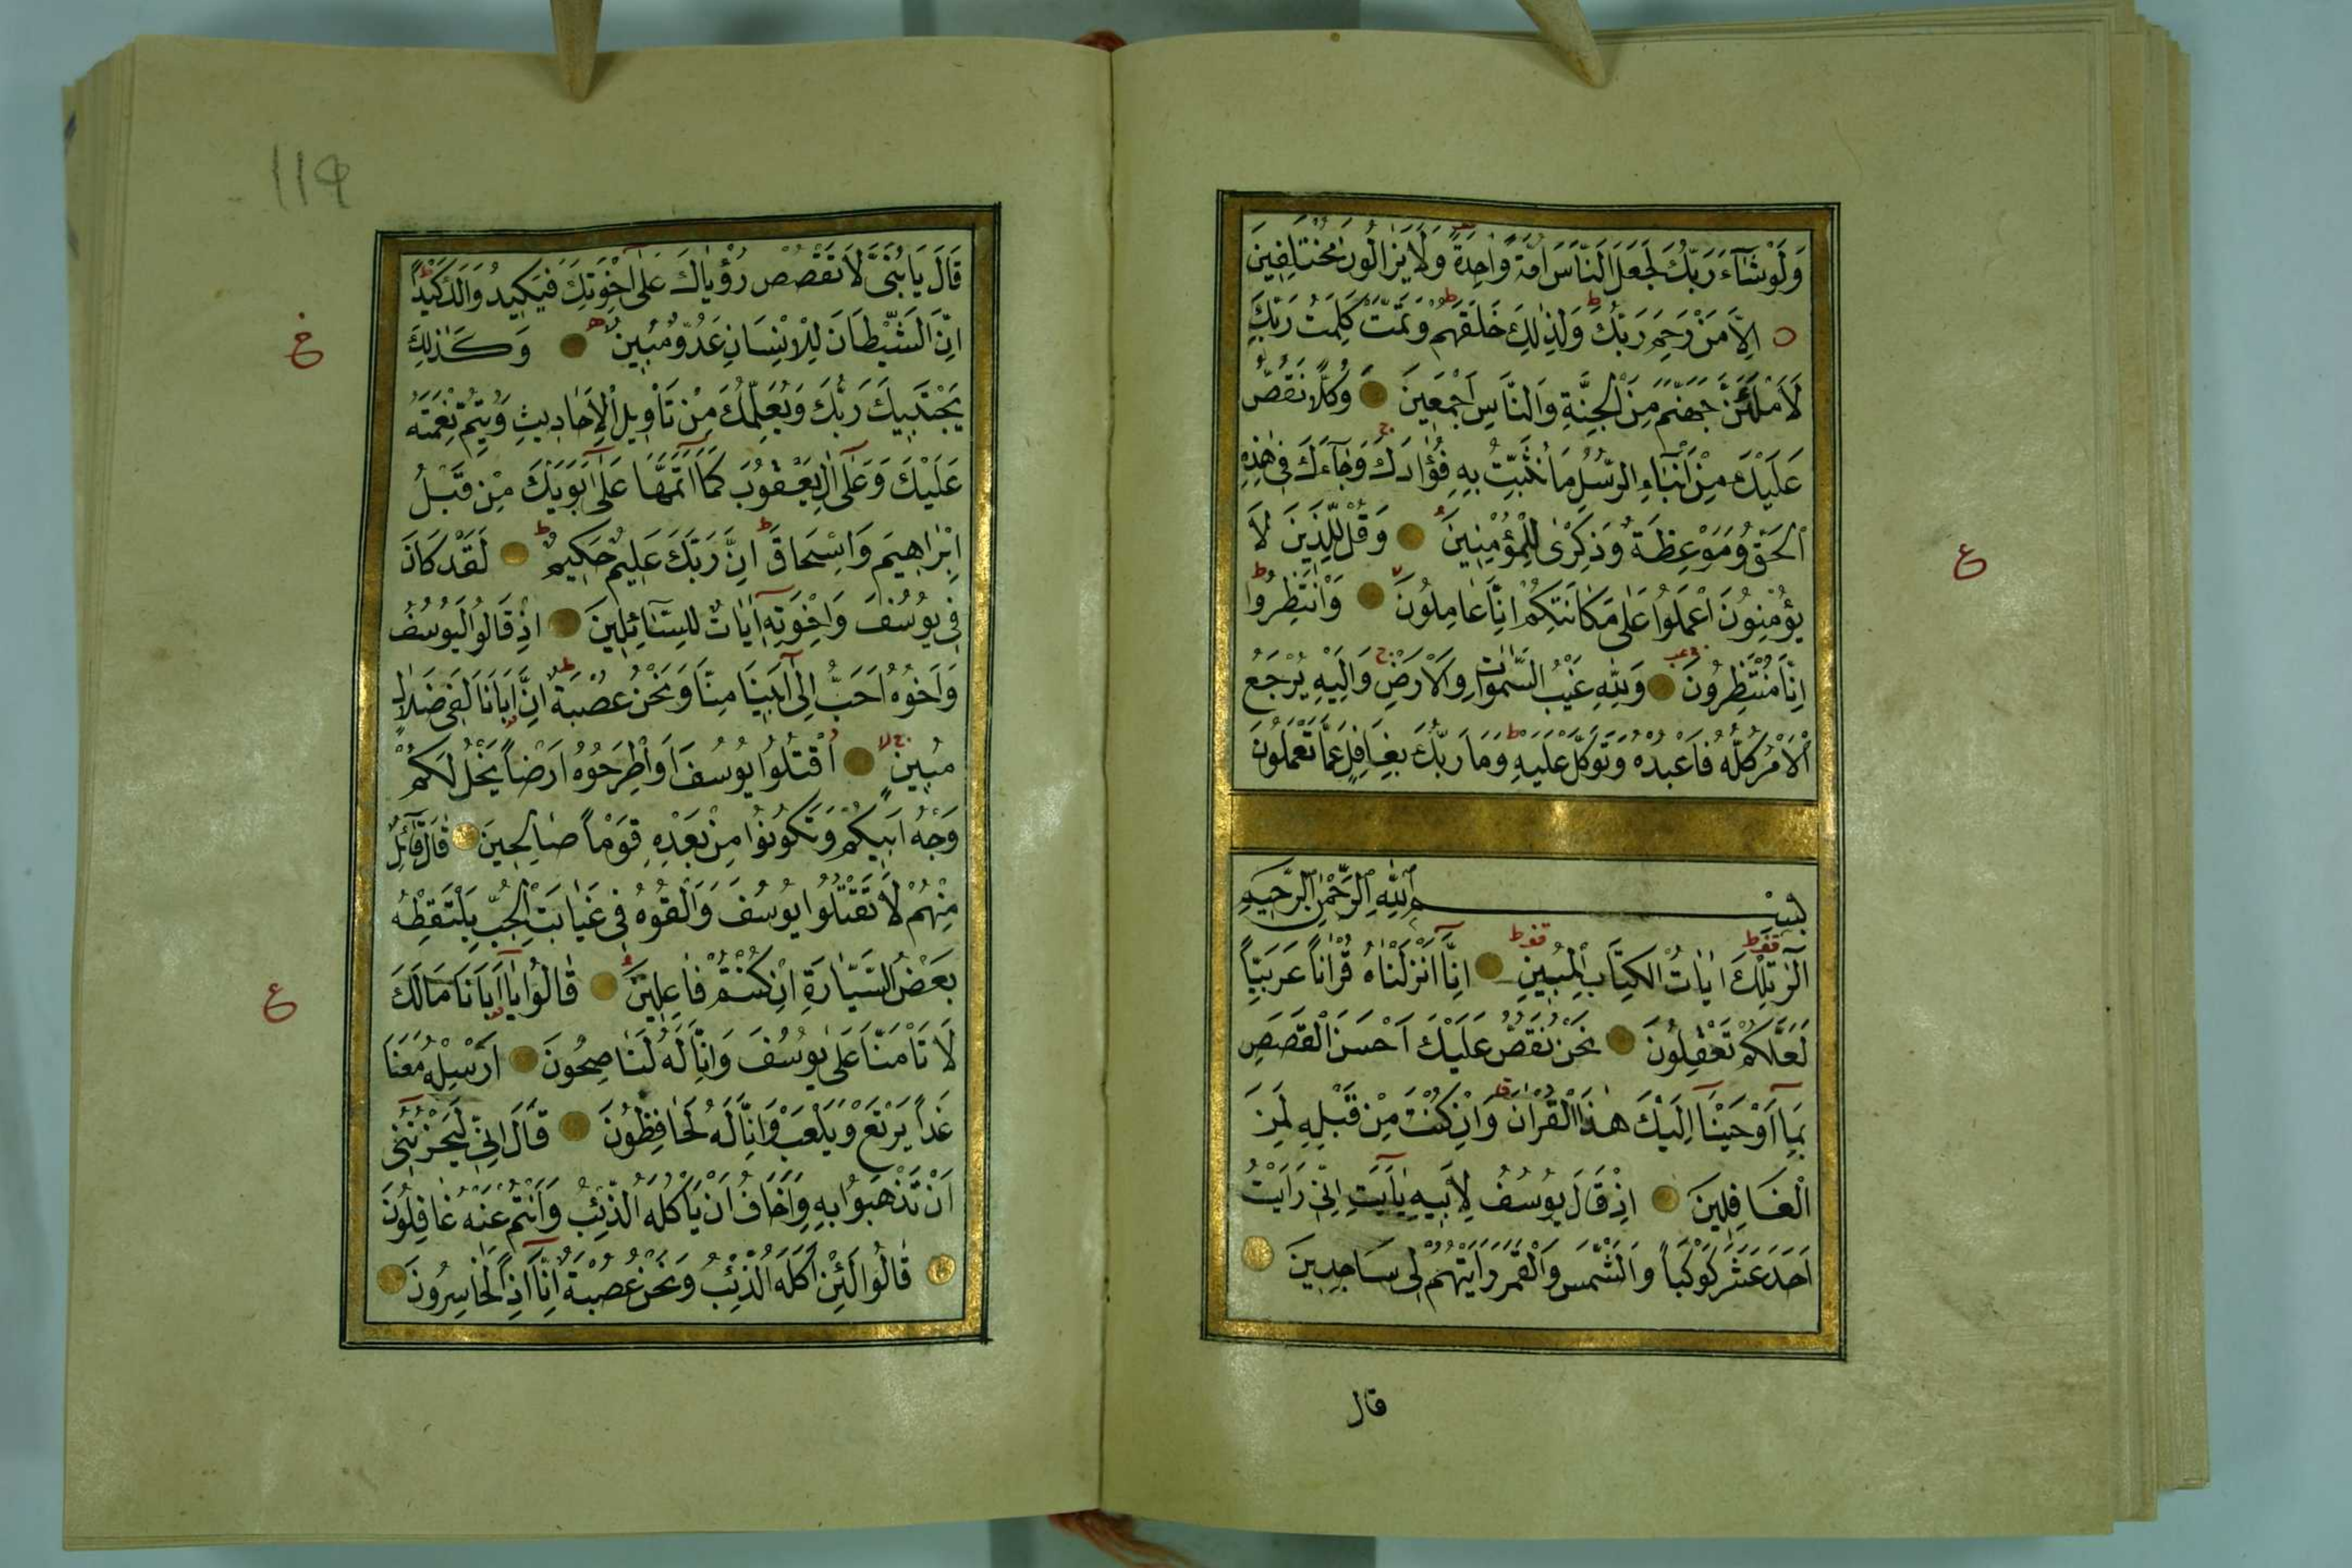 وَلَوْ شَآءَ رَبُّكَ لَجَعَلَ النَّاسَ اُمَّةً وَاحِدَةً وَلَا يَزَالُونَ مُخْتَلِفِينَ
اِلَّا مَنْ رَحِمَ رَبُّكَ وَلِذٰلِكَ خَلَقَهُمْ وَتَمَّتْ كَلِمَتُ رَبِّكَ
لَاَمْلَئَنَّ جَهَنَّمَ مِنَ الْجِنَّةِ وَالنَّاسِ اَجْمَعِينَ وَكُلًّا نَقُصُّ
عَلَيْكَ مِنْ اَنْبَاءِ الرُّسُلِ مَا نُثَبِّتُ بِهِ فُؤَادَكَ وَجَآءَكَ فِى هٰذِهِ
الْحَقُّ وَمَوْعِظَةٌ وَذِكْرٰى لِلْمُؤْمِنِينَ وَقُلْ لِلَّذِينَ لَا
يُؤْمِنُونَ اعْمَلُوا عَلٰى مَكَانَتِكُمْ اِنَّا عَامِلُونَ وَانْتَظِرُوا
اِنَّا مُنْتَظِرُونَ وَلِلّٰهِ غَيْبُ السَّمٰوَاتِ وَالْاَرْضِ وَاِلَيْهِ يُرْجَعُ
الْاَمْرُ كُلُّهُ فَاعْبُدْهُ وَتَوَكَّلْ عَلَيْهِ وَمَا رَبُّكَ بِغَافِلٍ عَمَّا تَعْمَلُونَ
بِسْمِ اللّٰهِ الرَّحْمٰنِ الرَّحِيمِ
الٓرٰ تِلْكَ اٰيَاتُ الْكِتَابِ الْمُبِينِ اِنَّآ اَنْزَلْنَاهُ قُرْاٰنًا عَرَبِيًّا
لَعَلَّكُمْ تَعْقِلُونَ نَحْنُ نَقُصُّ عَلَيْكَ اَحْسَنَ الْقَصَصِ
بِمَآ اَوْحَيْنَآ اِلَيْكَ هٰذَا الْقُرْاٰنَ وَاِنْ كُنْتَ مِنْ قَبْلِهِ لَمِنَ
الْغَافِلِينَ اِذْ قَالَ يُوسُفُ لِاَبِيهِ يَآ اَبَتِ اِنِّى رَاَيْتُ
اَحَدَ عَشَرَ كَوْكَبًا وَالشَّمْسَ وَالْقَمَرَ رَاَيْتُهُمْ لِى سَاجِدِينَ
قال
ع
119
قَالَ يَا بُنَىَّ لَا تَقْصُصْ رُؤْيَاكَ عَلٰٓى اِخْوَتِكَ فَيَكِيدُوا لَكَ كَيْدًا
اِنَّ الشَّيْطَانَ لِلْاِنْسَانِ عَدُوٌّ مُبِينٌ وَكَذٰلِكَ
يَجْتَبِيكَ رَبُّكَ وَيُعَلِّمُكَ مِنْ تَاْوِيلِ الْاَحَادِيثِ وَيُتِمُّ نِعْمَتَهُ
عَلَيْكَ وَعَلٰٓى اٰلِ يَعْقُوبَ كَمَآ اَتَمَّهَا عَلٰٓى اَبَوَيْكَ مِنْ قَبْلُ
اِبْرٰاهِيمَ وَاِسْحَاقَ اِنَّ رَبَّكَ عَلِيمٌ حَكِيمٌ لَقَدْ كَانَ
فِى يُوسُفَ وَاِخْوَتِهِ اٰيَاتٌ لِلسَّائِلِينَ اِذْ قَالُوا لَيُوسُفُ
وَاَخُوهُ اَحَبُّ اِلٰٓى اَبِينَا مِنَّا وَنَحْنُ عُصْبَةٌ اِنَّ اَبَانَا لَفِى ضَلَالٍ
مُبِينٍ اُقْتُلُوا يُوسُفَ اَوِ اطْرَحُوهُ اَرْضًا يَخْلُ لَكُمْ
وَجْهُ اَبِيكُمْ وَتَكُونُوا مِنْ بَعْدِهِ قَوْمًا صَالِحِينَ قَالَ قَآئِلٌ
مِنْهُمْ لَا تَقْتُلُوا يُوسُفَ وَاَلْقُوهُ فِى غَيَابَتِ الْجُبِّ يَلْتَقِطْهُ
بَعْضُ السَّيَّارَةِ اِنْ كُنْتُمْ فَاعِلِينَ قَالُوا يَآ اَبَانَا مَا لَكَ
لَا تَاْمَنَّا عَلٰى يُوسُفَ وَاِنَّا لَهُ لَنَاصِحُونَ اَرْسِلْهُ مَعَنَا
غَدًا يَرْتَعْ وَيَلْعَبْ وَاِنَّا لَهُ لَحَافِظُونَ قَالَ اِنِّى لَيَحْزُنُنِى
اَنْ تَذْهَبُوا بِهِ وَاَخَافُ اَنْ يَاْكُلَهُ الذِّئْبُ وَاَنْتُمْ عَنْهُ غَافِلُونَ
قَالُوا لَئِنْ اَكَلَهُ الذِّئْبُ وَنَحْنُ عُصْبَةٌ اِنَّآ اِذًا لَخَاسِرُونَ
ع